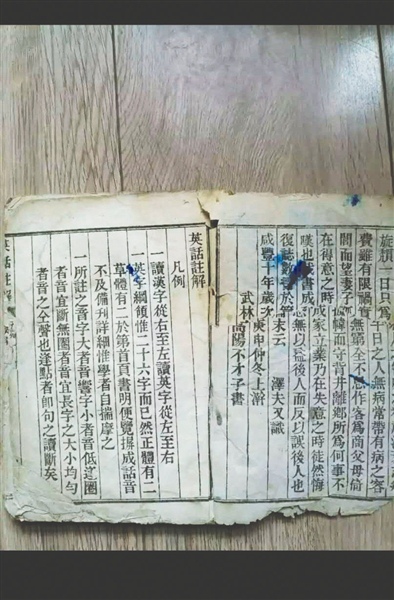 一日只爲千日之人無病常帶有病之客
費雖有限禍實無窮第全不作客爲商父母倚
閭而望妻子倚幃而守背井離鄉所爲何事不
在得意之時成家立業乃在失意之時徒然悔
嘆也哉書成無以後人而反以誤後人也
復誌數於末云 澤夫又識
咸豐十年歲次庚申仲冬上澣
武林高陽不才子書
英話註解
凡例
一讀漢字從右至左讀英字從左至右
一英字綱領惟二十六字而已然正體有二
草體有二於第首頁書明便覽揀成話音
不及備刊詳細惟學者自揣摩之
一所註之音字大者音響字小者音低逐圈
者音宜斷無圈者音宜長字之大小均勻
者音之全聲也逢點者即句之讀斷矣
英話註解